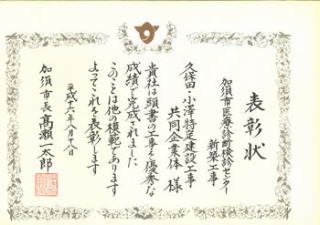 表彰状
加須市医療診断検診センター
新築工事
久保田・小澤特定建設工事
共同企業体 様
貴社は頭書の工事を優秀な
成績で完成されました
このことは他の模範であります
よってこれを表彰します
平成十六年八月十八日
加須市長 高瀬一太郎